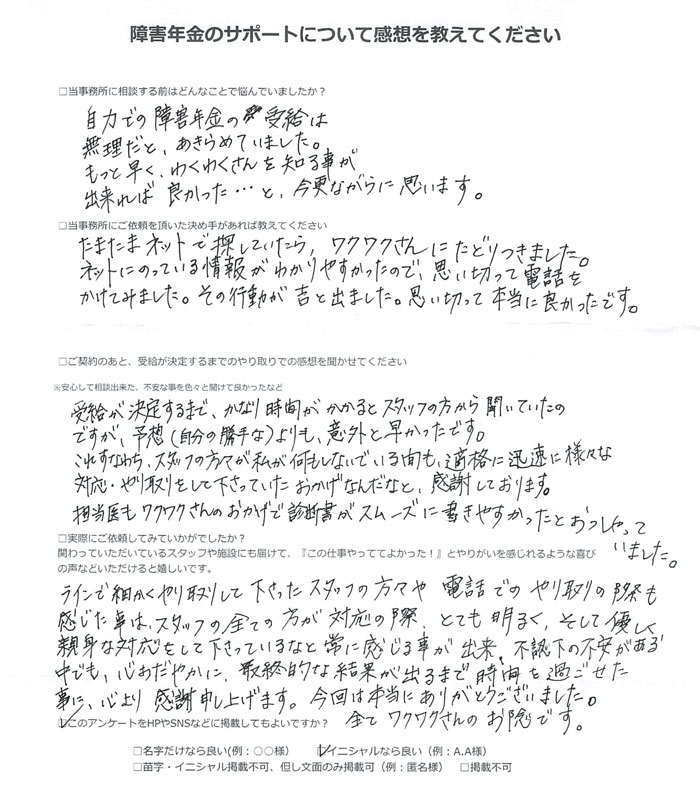 障害年金のサポートについて感想を教えてください
□当事務所に相談する前はどんなことで悩んでいましたか？
自力での障害年金の受給は
無理だと、あきらめていました。
もっと早く、わくわくさんを知る事が
出来れば良かった…と、今更ながらに思います。
□当事務所にご依頼を頂いた決め手があれば教えてください
たまたまネットで探していたら、ワクワクさんにたどりつきました。
ネットにのっている情報がわかりやすかったので、思い切って電話を
かけてみました。その行動が吉と出ました。思い切って本当に良かったです。
□ご契約のあと、受給が決定するまでのやり取りでの感想を聞かせてください
※安心して相談出来た、不安な事を色々と聞けて良かったなど
受給が決定するまで、かなり時間がかかるとスタッフの方から聞いていたの
ですが、予想（自分の勝手な）よりも、意外と早かったです。
これすなわち、スタッフの方々が私が何もしないでいる間も、適格に迅速に様々な
対応・やり取りをして下さっていたおかげなんだなと、感謝しております。
担当医もワクワクさんのおかげで診断書がスムーズに書きやすかったとおっしゃって
いました。
□実際にご依頼してみていかがでしたか？
関わっていただいているスタッフや施設にも届けて、『この仕事やっててよかった！』とやりがいを感じれるような喜び
の声などいただけると嬉しいです。
ラインで細かくやり取りして下さったスタッフの方々や電話でのやり取りの際も
感じた事は、スタッフの全ての方が対応の際、とても明るく、そして優しく
親身な対応をして下さっているなと常に感じる事が出来、不認下の不安がある
中でも、心おだやかに、最終的な結果が出るまで時間を過ごせた
事に、心より感謝申し上げます。今回は本当にありがとうございました。
全てワクワクさんのお陰です。
☑このアンケートをHPやSNSなどに掲載してもよいですか？
□名字だけなら良い(例：○○様） ☑イニシャルなら良い（例：A.A様）
□苗字・イニシャル掲載不可、但し文面のみ掲載可（例：匿名様） □掲載不可